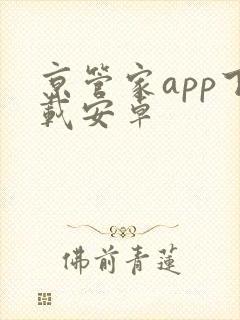 京管家app下
载安卓
佛前青莲